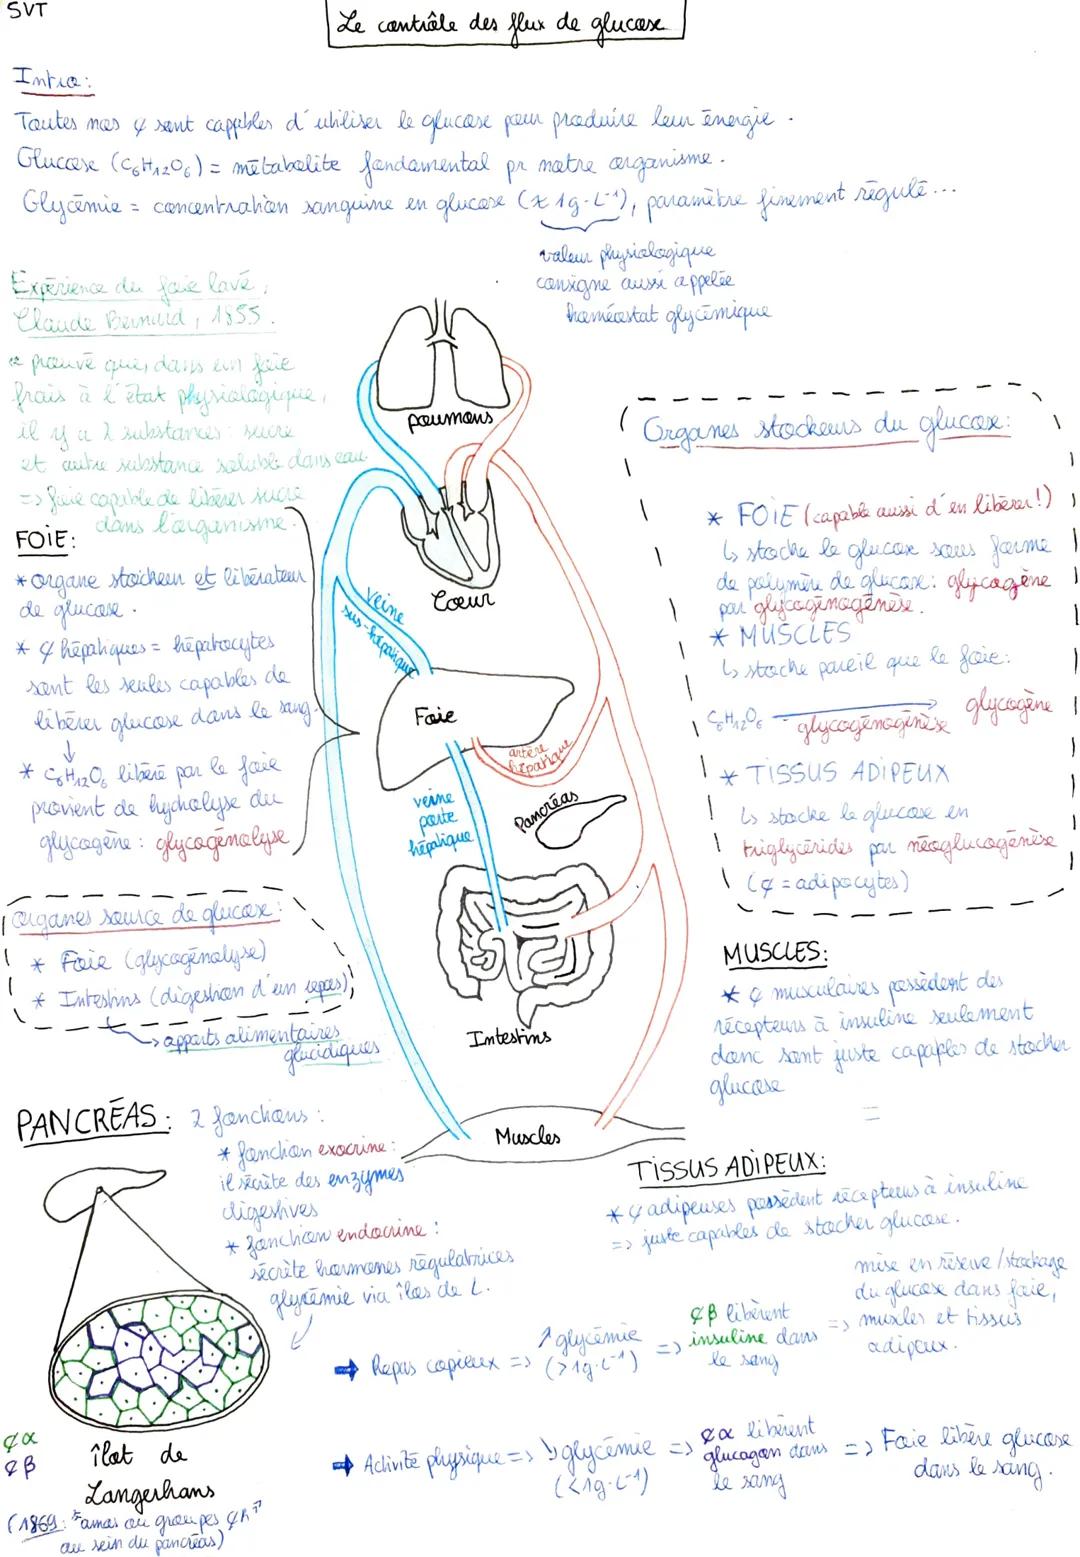 SVT
Le contrôle des flux de glucose
Intro:
Toutes nos ȼ sont cappbles d'utiliser le glucose pour produire leur énergie.
Glucose (C₆H₁₂O₆) = métabolite fondamental pr notre organisme.
Glycémie = concentration sanguine en glucose (≈ 1g·L⁻¹), paramètre finement régulé...
valeur physiologique
consigne aussi appelée
homéostat glycémique
Expérience du foie lavé,
Claude Bernard, 1855.
prouvé que, dans un foie
frais à l'état physiologique,
il y a 2 substances: sucre
et autre substance soluble dans eau
=> foie capable de libérer sucre
dans l'organisme.
FOIE:
* organe stockeur et libérateur
de glucose.
* ȼ hépatiques = hépatocytes
sont les seules capables de
libérer glucose dans le sang.
↓
* C₆H₁₂O₆ libéré par le foie
provient de hydrolyse du
glycogène: glycogénolyse
Organes source de glucose:
* Foie (glycogénolyse)
* Intestins (digestion d'un repas)
↳ apports alimentaires
glucidiques
poumons
Coeur
veine
sus-hépatique
Foie
artère
hépatique
veine
porte
hépatique
Pancréas
Intestins
Muscles
Organes stockeurs du glucose:
* FOIE (capable aussi d'en libérer!)
↳ stocke le glucose sous forme
de polymère de glucose: glycogène
par glycogénogénèse.
* MUSCLES
↳ stocke pareil que le foie:
C₆H₁₂O₆ → glycogène
glycogénogénèse
* TISSUS ADIPEUX
↳ stocke le glucose en
triglycérides par néoglucogénèse
(ȼ = adipocytes)
MUSCLES:
* ȼ musculaires possèdent des
récepteurs à insuline seulement
donc sont juste capables de stocker
glucose
=
TISSUS ADIPEUX:
* ȼ adipeuses possèdent récepteurs à insuline
=> juste capables de stocker glucose.
PANCRÉAS: 2 fonctions:
* fonction exocrine:
il sécrète des enzymes
digestives
* fonction endocrine:
sécrète hormones régulatrices
glycémie via îlos de L.
ȼα
ȼβ
îlot de
Langerhans
(1869: "amas ou groupes ȼR"
au sein du pancréas)
➡ Repas copieux => ↗ glycémie (>1g·L⁻¹) => ȼβ libèrent insuline dans le sang => mise en réserve/stockage du glucose dans foie, muscles et tissus adipeux.
➡ Activité physique => ↘ glycémie (<1g·L⁻¹) => ȼα libèrent glucagon dans le sang => Foie libère glucose dans le sang.